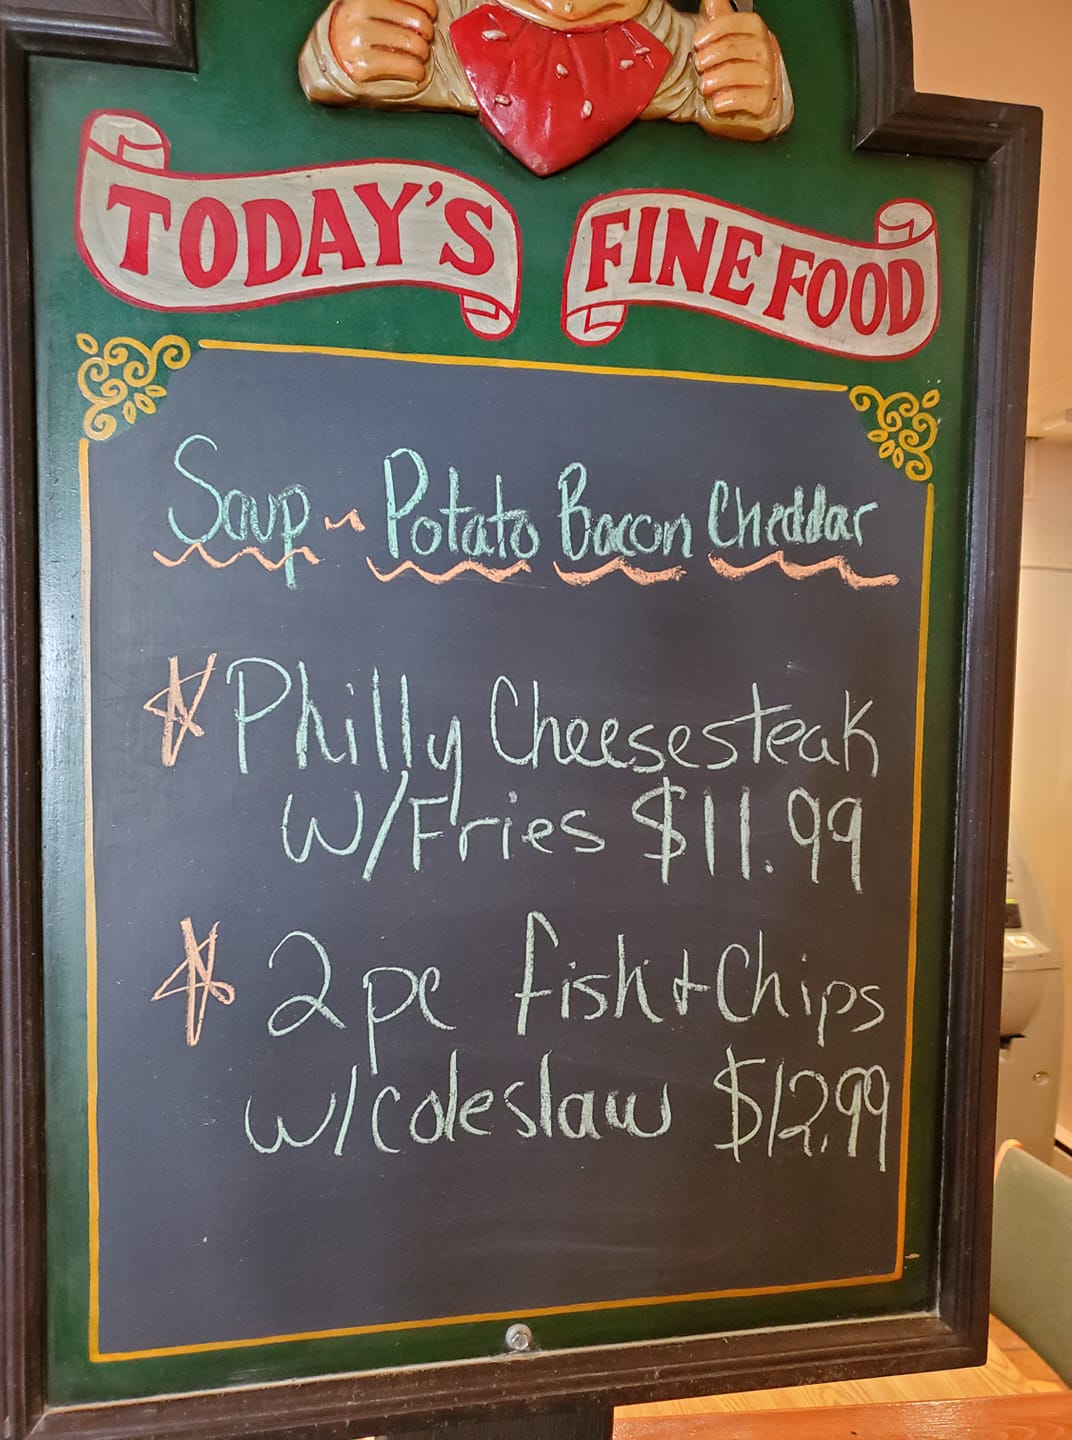 TODAY'S FINE FOOD
Soup ~ Potato Bacon Cheddar
Philly Cheesesteak
W/Fries $11.99
2pc fish + Chips
w/coleslaw $12.99